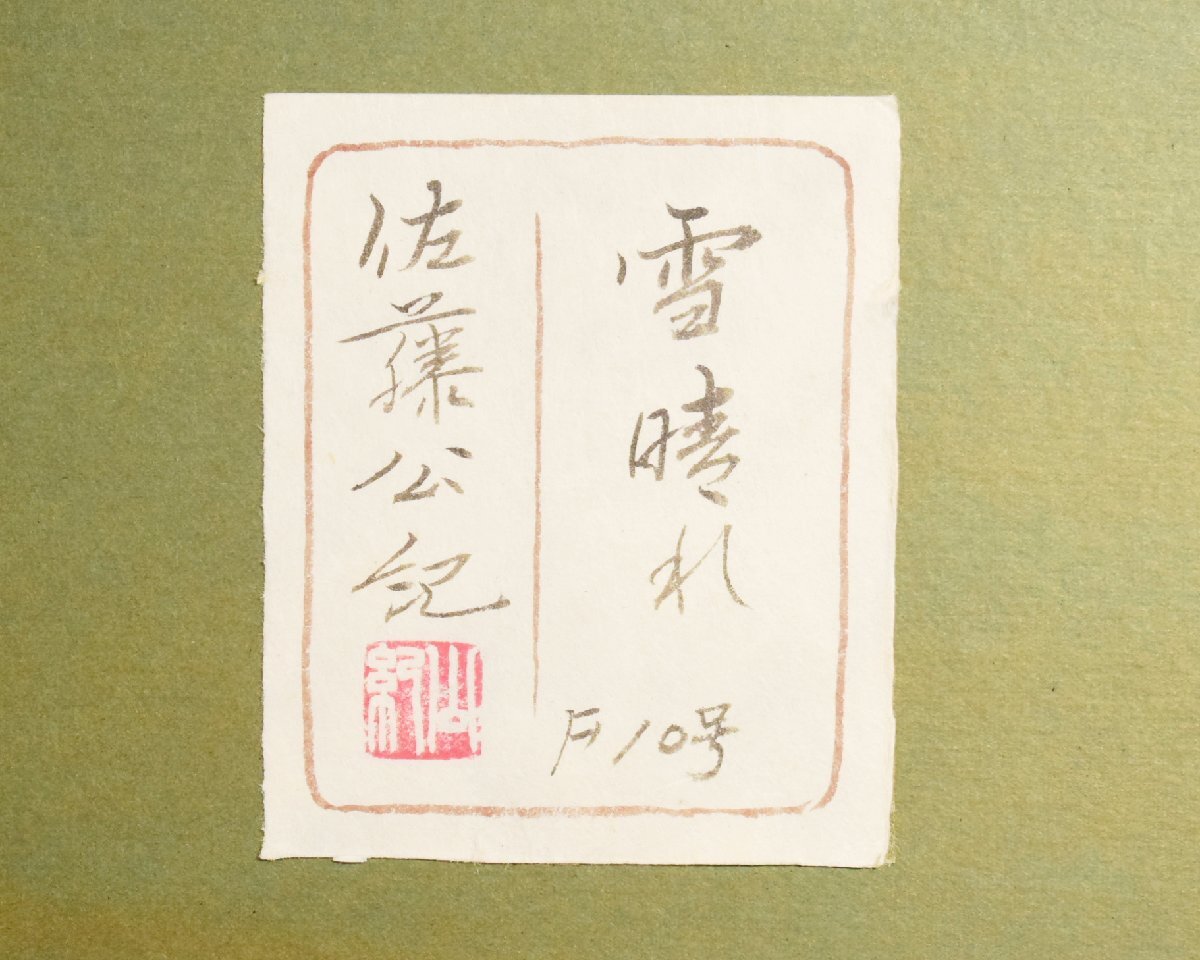 雪晴れ
F10号
佐藤公紀
公紀